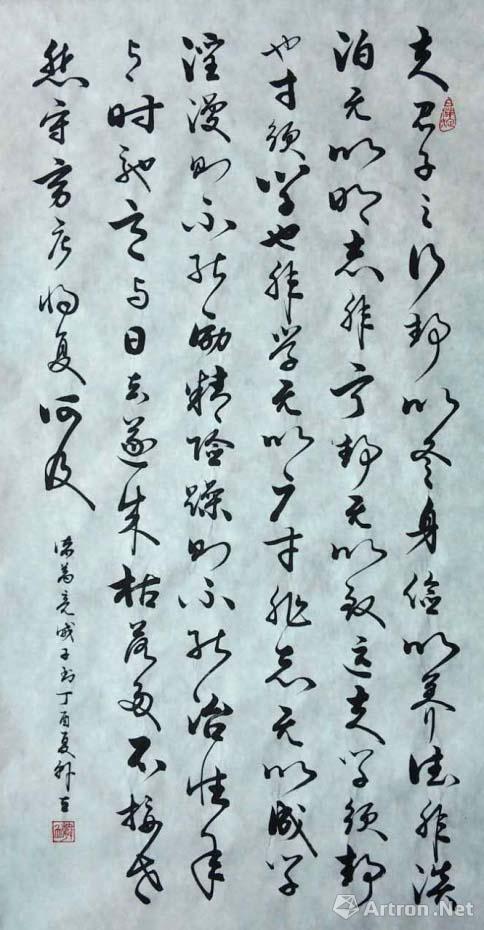 夫君子之行静以修身俭以养德非淡
泊无以明志非宁静无以致远夫学须静
也才须学也非学无以广才非志无以成学
淫漫则不能励精险躁则不能治性年
与时驰意与日去遂成枯落多不接世
悲守穷庐将复何及
诸葛亮诫子书丁酉夏
Artron.Net